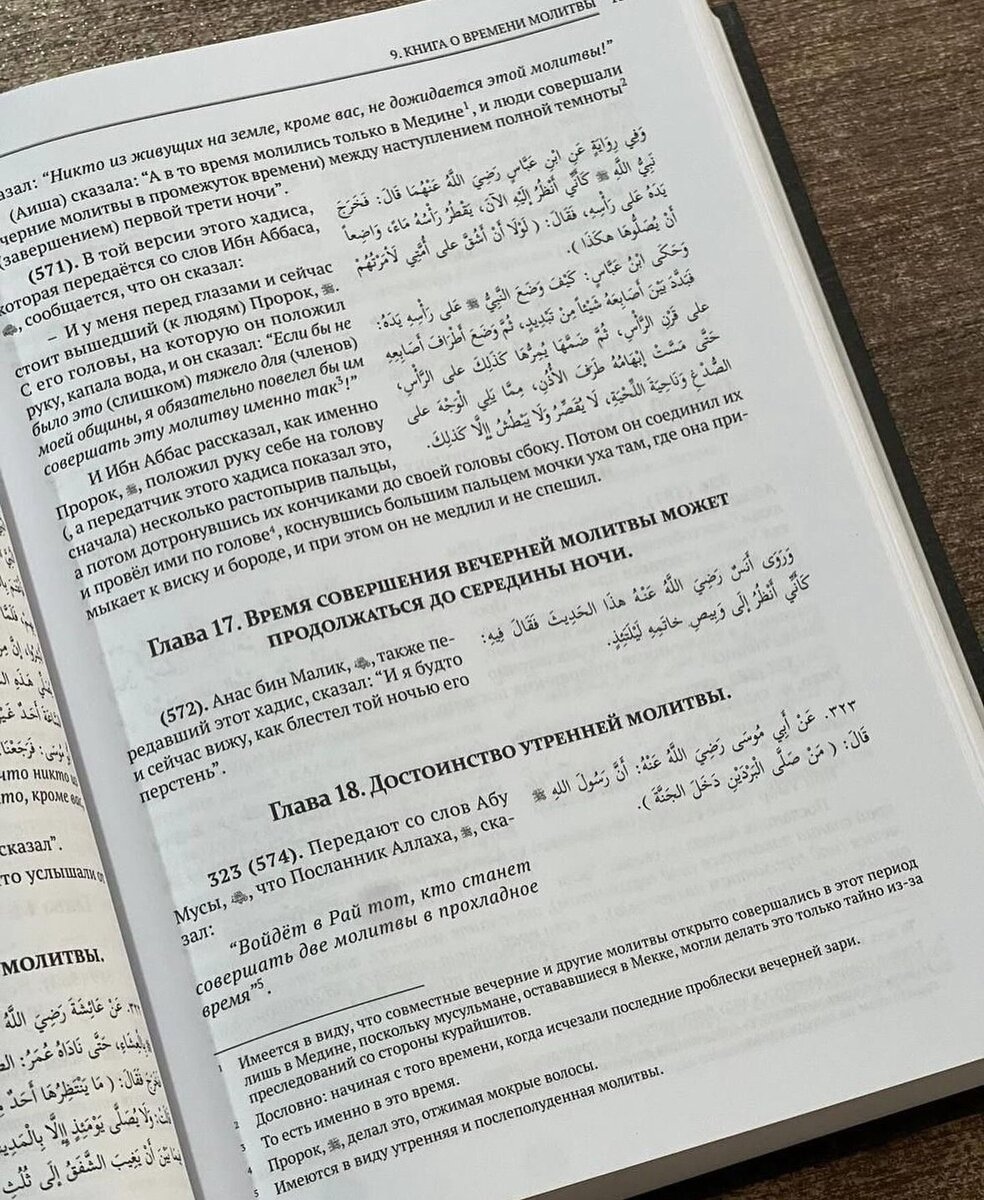 9. КНИГА О ВРЕМЕНИ МОЛИТВЫ
азал: “Никто из живущих на земле, кроме вас, не дожидается этой молитвы!”
(Аиша) сказала: “А в то время молились только в Медине¹, и люди совершали
черние молитвы в промежуток времени) между наступлением полной темноты²
(завершением) первой трети ночи”.
(571). В той версии этого хадиса,
которая передаётся со слов Ибн Аббаса,
ﷺ, сообщается, что он сказал:
– И у меня перед глазами и сейчас
стоит вышедший (к людям) Пророк, ﷺ.
С его головы, на которую он положил
руку, капала вода, и он сказал: “Если бы не
было это (слишком) тяжело для (членов)
моей общины, я обязательно повелел бы им
совершать эту молитву именно так³!”
И Ибн Аббас рассказал, как именно
Пророк, ﷺ, положил руку себе на голову
(, а передатчик этого хадиса показал это,
сначала) несколько растопырив пальцы,
а потом дотронувшись их кончиками до своей головы сбоку. Потом он соединил их
и провёл ими по голове⁴, коснувшись большим пальцем мочки уха там, где она при-
мыкает к виску и бороде, и при этом он не медлил и не спешил.
وَفِي رِوَايَةٍ عَنِ ابْنِ عَبَّاسٍ رَضِيَ اللَّهُ عَنْهُمَا قَالَ: فَخَرَجَ
نَبِيُّ اللَّهِ ﷺ كَأَنِّي أَنْظُرُ إِلَيْهِ الآنَ، يَقْطُرُ رَأْسُهُ مَاءً، وَاضِعاً
يَدَهُ عَلَى رَأْسِهِ، فَقَالَ: ( لَوْلَا أَنْ أَشُقَّ عَلَى أُمَّتِي لَأَمَرْتُهُمْ
أَنْ يُصَلُّوهَا هكَذَا ).
وَحَكَى ابْنُ عَبَّاسٍ: كَيْفَ وَضَعَ النَّبِيُّ ﷺ عَلَى رَأْسِهِ يَدَهُ:
فَبَدَّدَ بَيْنَ أَصَابِعِهِ شَيْئاً مِنْ تَبْدِيدٍ، ثُمَّ وَضَعَ أَطْرَافَ أَصَابِعِهِ
عَلَى قَرْنِ الرَّأْسِ، ثُمَّ ضَمَّهَا يُمِرُّهَا كَذَلِكَ عَلَى الرَّأْسِ،
حَتَّى مَسَّتْ إِبْهَامُهُ طَرَفَ الأُذُنِ، مِمَّا يَلِي الْوَجْهَ عَلَى
الصُّدْغِ وَنَاحِيَةِ اللِّحْيَةِ، لَا يُقَصِّرُ وَلَا يَبْطُشُ إِلَّا كَذَلِكَ.
Глава 17. Время совершения вечерней молитвы может
продолжаться до середины ночи.
(572). Анас бин Малик, также пе-
редавший этот хадис, сказал: “И я будто
и сейчас вижу, как блестел той ночью его
перстень”.
وَرَوَى أَنَسٌ رَضِيَ اللَّهُ عَنْهُ هذَا الْحَدِيثَ فَقَالَ فِيهِ:
كَأَنِّي أَنْظُرُ إِلَى وَبِيصِ خَاتَمِهِ لَيْلَتَئِذٍ.
Глава 18. Достоинство утренней молитвы.
323 (574). Передают со слов Абу
Мусы, что Посланник Аллаха, ﷺ, ска-
зал:
“Войдёт в Рай тот, кто станет
совершать две молитвы в прохладное
время”⁵.
٣٢٣. عَنْ أَبِي مُوسَى رَضِيَ اللَّهُ عَنْهُ: أَنَّ رَسُولَ اللهِ ﷺ
قَالَ: ( مَنْ صَلَّى الْبَرْدَيْنِ دَخَلَ الجَنَّةَ ).
1 Имеется в виду, что совместные вечерние и другие молитвы открыто совершались в этот период
лишь в Медине, поскольку мусульмане, остававшиеся в Мекке, могли делать это только тайно из-за
преследований со стороны курайшитов.
2 Дословно: начиная с того времени, когда исчезали последние проблески вечерней зари.
3 То есть именно в это время.
4 Пророк, ﷺ, делал это, отжимая мокрые волосы.
5 Имеются в виду утренняя и послеполуденная молитвы.
что никто из
то, кроме вас
сказал”.
то услышали от
МОЛИТВЫ.
عَنْ عَائِشَةَ رَضِيَ اللَّهُ
حَتَّى نَادَاهُ عُمَرُ:
فَقَالَ: ( مَا يَنْتَظِرُهَا أَحَدٌ
وَلَا يُصَلَّى يَوْمَئِذٍ إِلَّا بِالْمَدِي
أَنْ يَغِيبَ الشَّفَقُ إِلَى ثُلُثِ